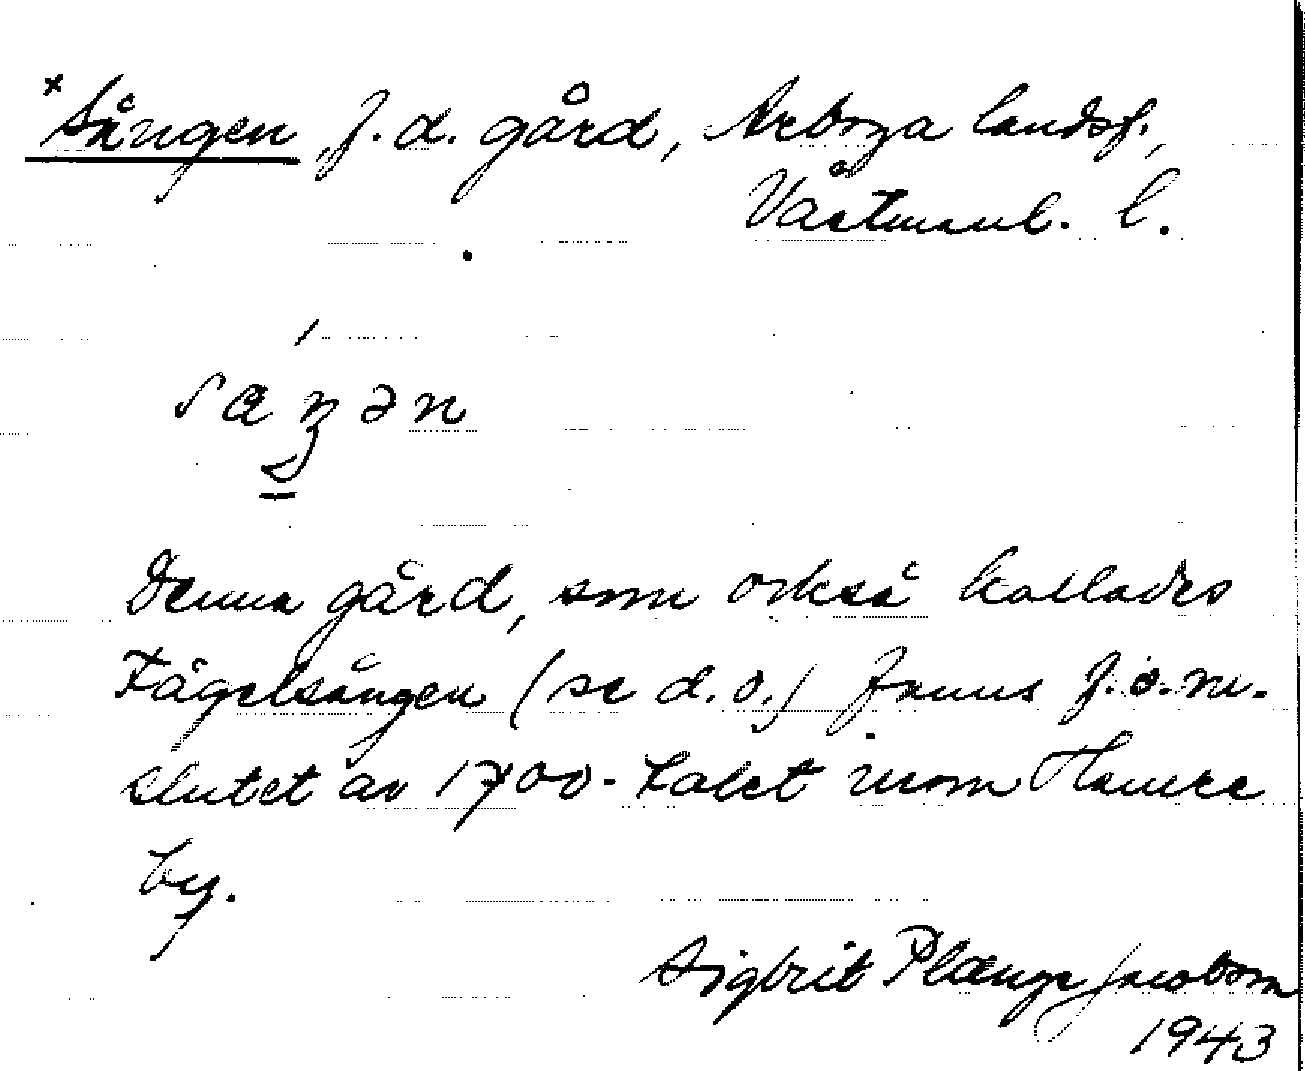 *Sången, f. d. gård, Arboga landsf.,
Västmanl. l.
sɑŋən
Denna gård, som också kallades
Fågelsången (se d. o.) fanns f. o. m.
slutet av 1700-talet inom Hamre
by.
Sigbrit Plænge Jacobson
1943